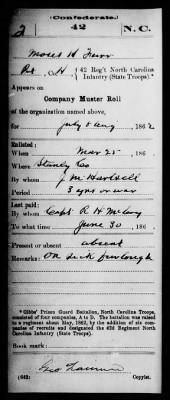 (Confederate.)
2 42 N.C.
Moses H Furr
Pvt, Co. H, 42 Reg't North Carolina
Infantry (State Troops).*
Appears on
Company Muster Roll
of the organization named above,
for July & Aug, 1862
Enlisted:
When Mar 25, 186
Where Stanly Co
By whom J M Hartsell
Period 3 yrs or war
Last paid:
By whom Capt R H
To what time June 30, 186
Present or absent absent
Remarks: On sick furlough
*Gibbs' Prison Guard Battalion, North Carolina Troops,
consisted of four companies, A to D. The battalion was raised
to a regiment about May, 1862, by the addition of six com-
panies of recruits and designated the 42d Regiment North
Carolina Infantry (State Troops).
Book mark:
(642) Copyist.